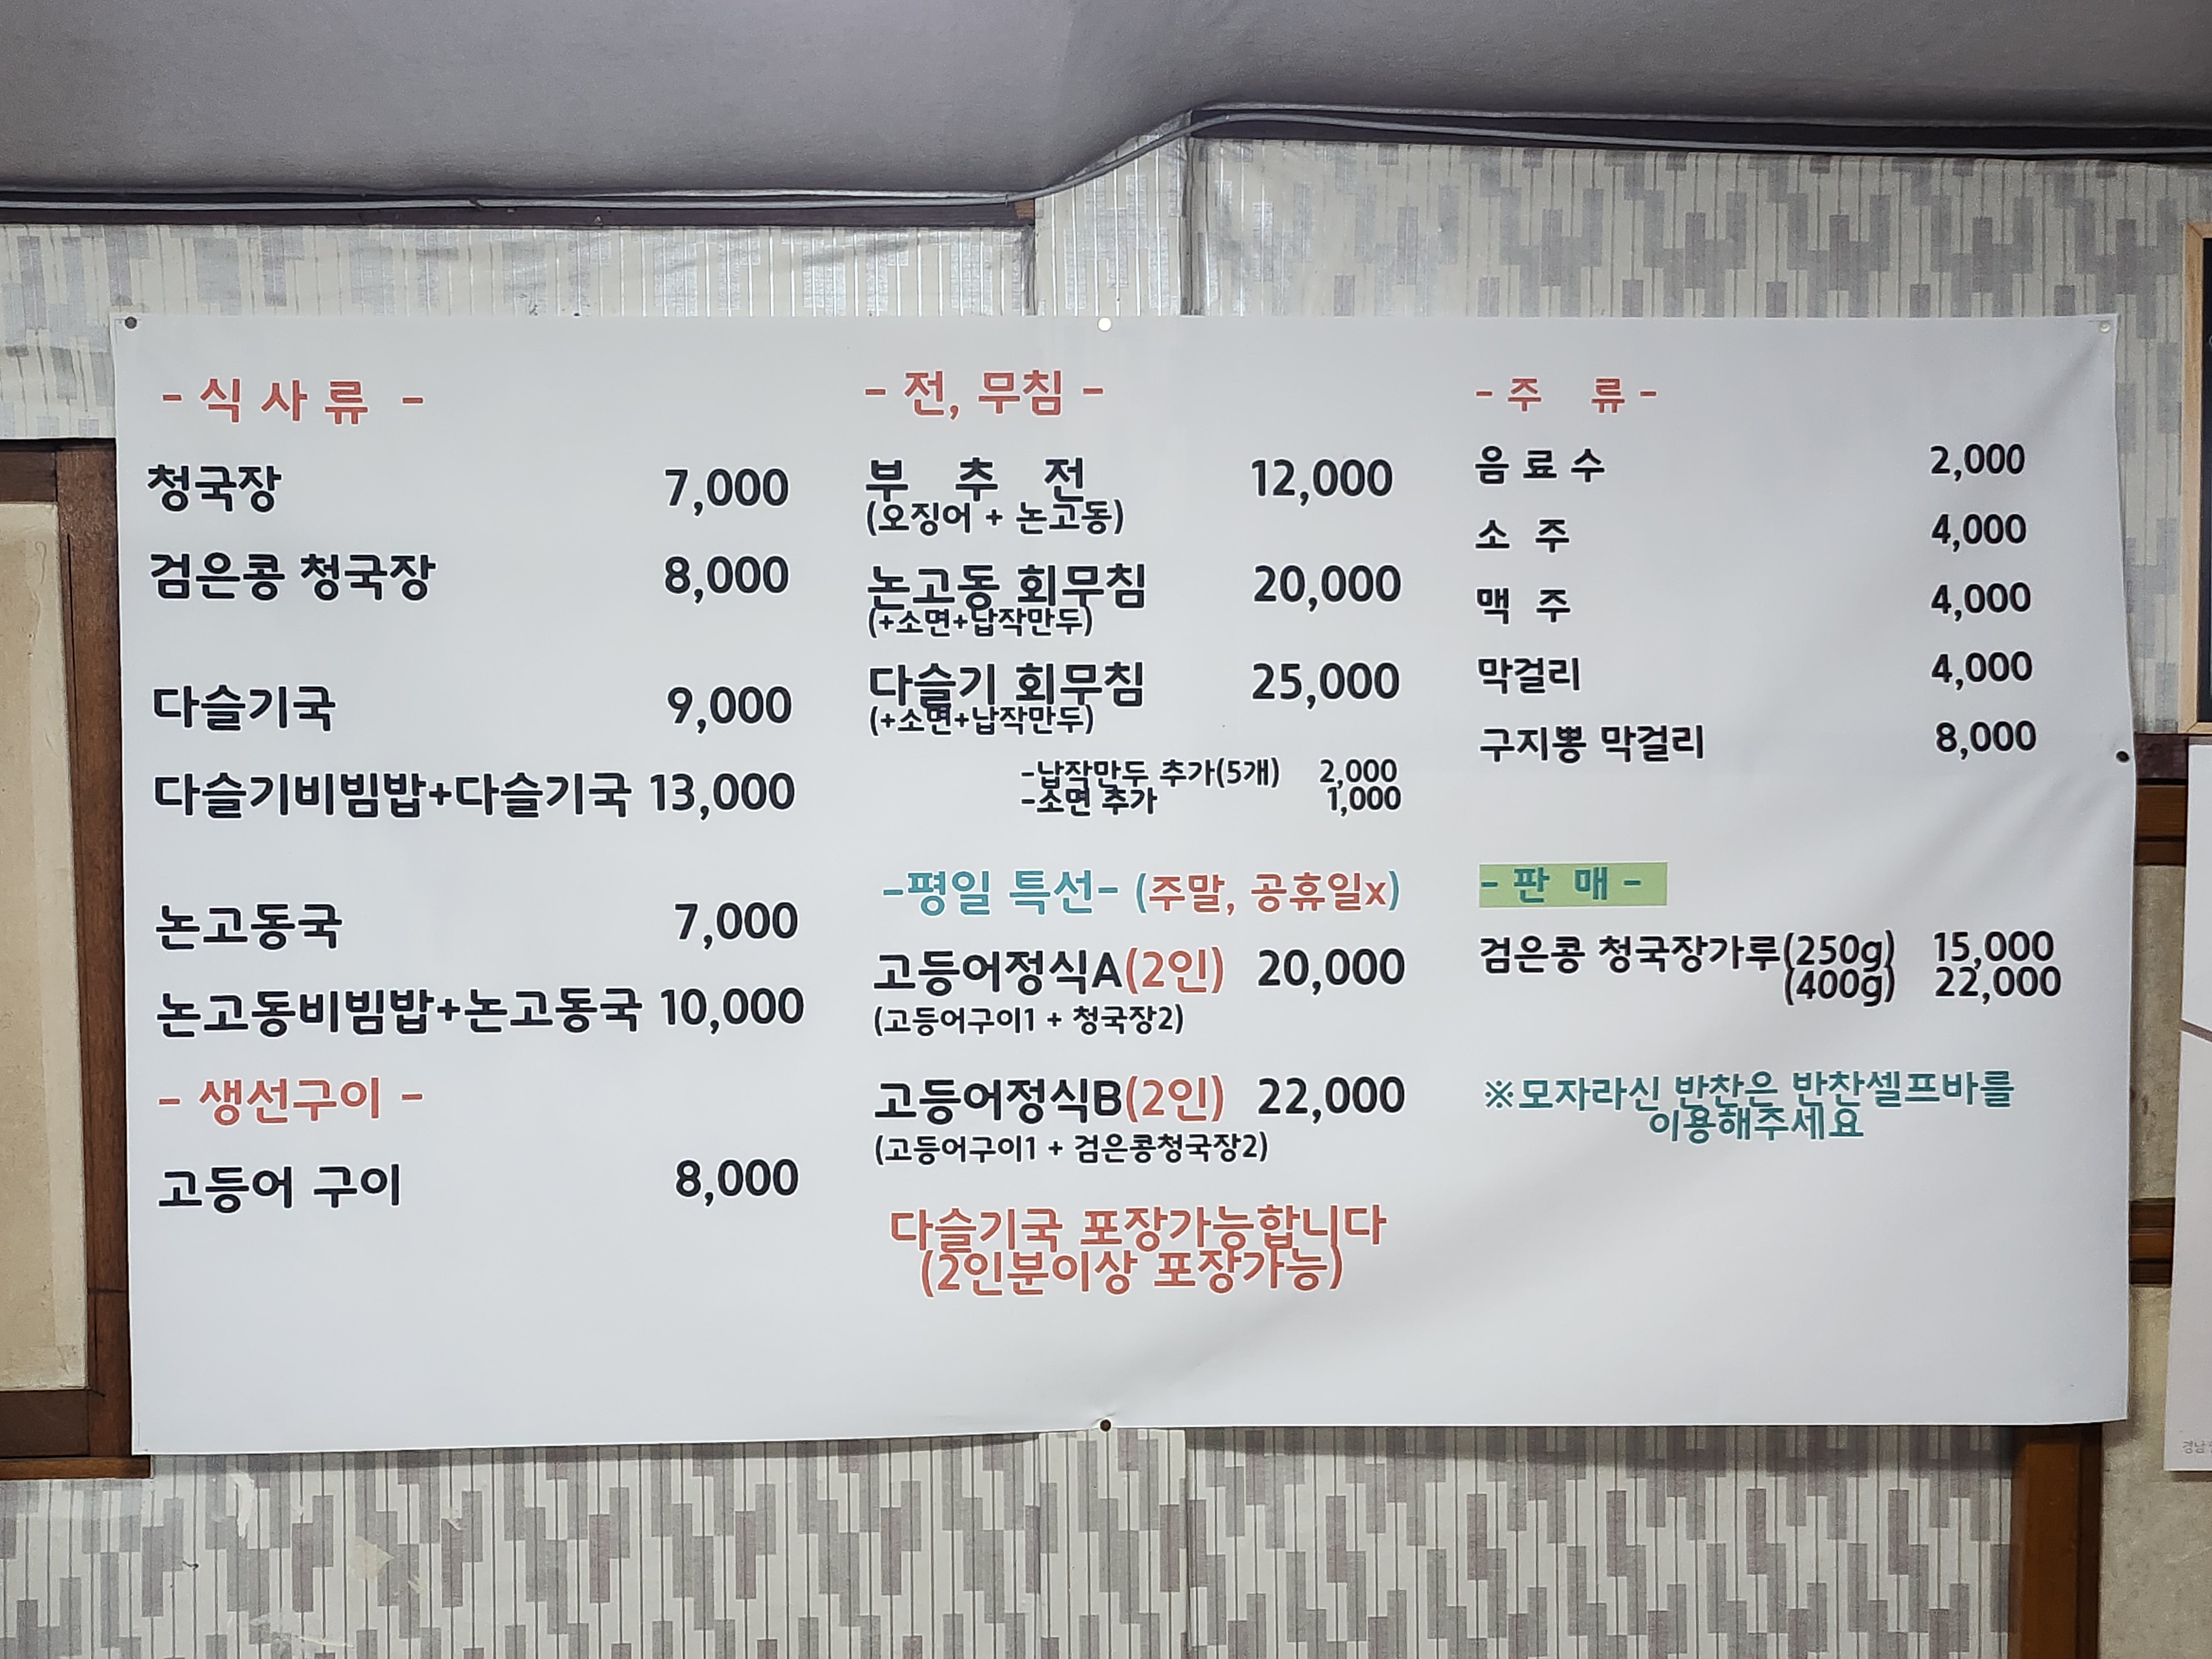 - 식 사 류 -
청국장 7,000
검은콩 청국장 8,000
다슬기국 9,000
다슬기비빔밥+다슬기국 13,000
논고동국 7,000
논고동비빔밥+논고동국 10,000
- 생선구이 -
고등어 구이 8,000
- 전, 무침 -
부 추 전 12,000
(오징어 + 논고동)
논고동 회무침 20,000
(+소면+납작만두)
다슬기 회무침 25,000
(+소면+납작만두)
-납작만두 추가(5개) 2,000
-소면 추가 1,000
-평일 특선- (주말, 공휴일x)
고등어정식A(2인) 20,000
(고등어구이1 + 청국장2)
고등어정식B(2인) 22,000
(고등어구이1 + 검은콩청국장2)
다슬기국 포장가능합니다
(2인분이상 포장가능)
- 주 류 -
음 료 수 2,000
소 주 4,000
맥 주 4,000
막걸리 4,000
구지뽕 막걸리 8,000
- 판 매 -
검은콩 청국장가루(250g) 15,000
(400g) 22,000
※모자라신 반찬은 반찬셀프바를
이용해주세요
경남